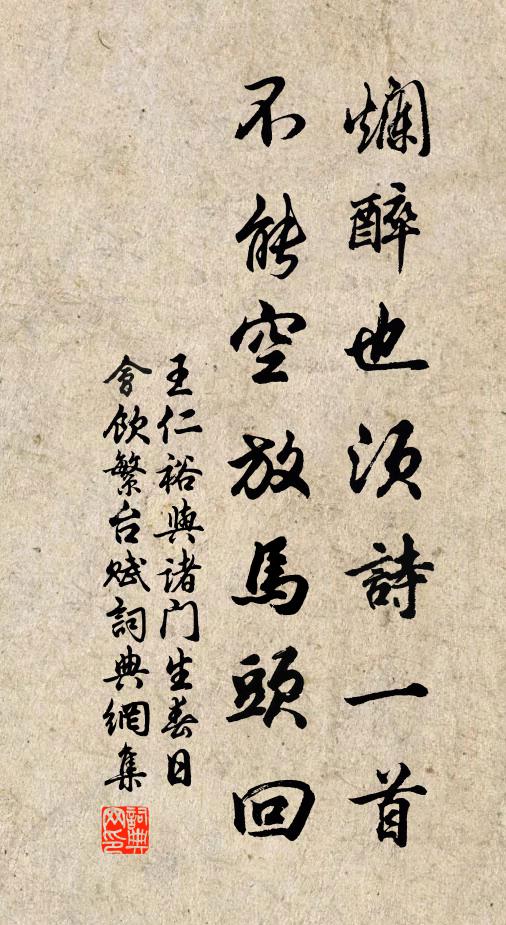 爛醉也須詩一首
不能空放馬頭回
王仁裕與諸门生春日
會飲繁台賦詞典網集
詞典
网印